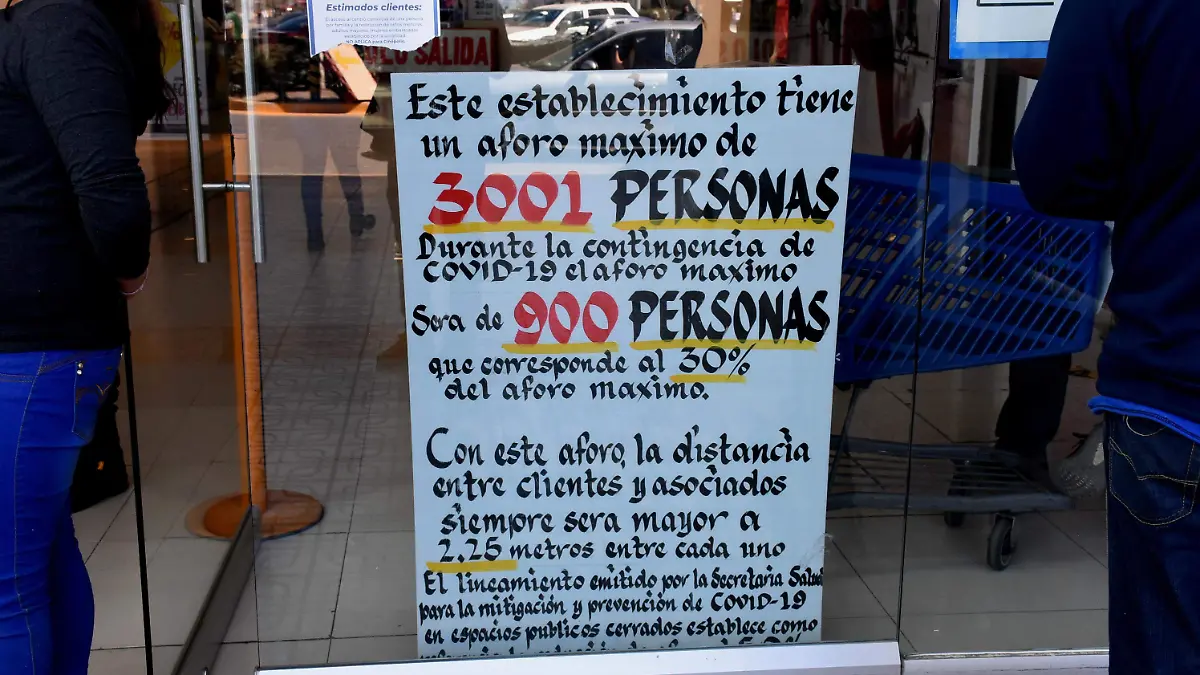 Estimados clientes:
SALIDA
Este establecimiento tiene
un aforo maximo de
3001 PERSONAS
Durante la contingencia de
COVID-19 el aforo maximo
Sera de 900 PERSONAS
que corresponde al 30%
del aforo maximo.
Con este aforo, la distancia
entre clientes y asociados
siempre sera mayor a
2.25 metros entre cada uno
El lineamiento emitido por la Secretaria Salud
para la mitigación y prevención de COVID-19
en espacios publicos cerrados establece como